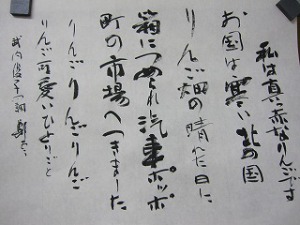 私は真っ赤なりんごです
お国は寒い北の国
りんご畑の晴れた日に
箱につめられ汽車ポッポ
町の市場へつきました
りんごりんごりんご
りんご可愛いひとりごと
武内俊子 詞